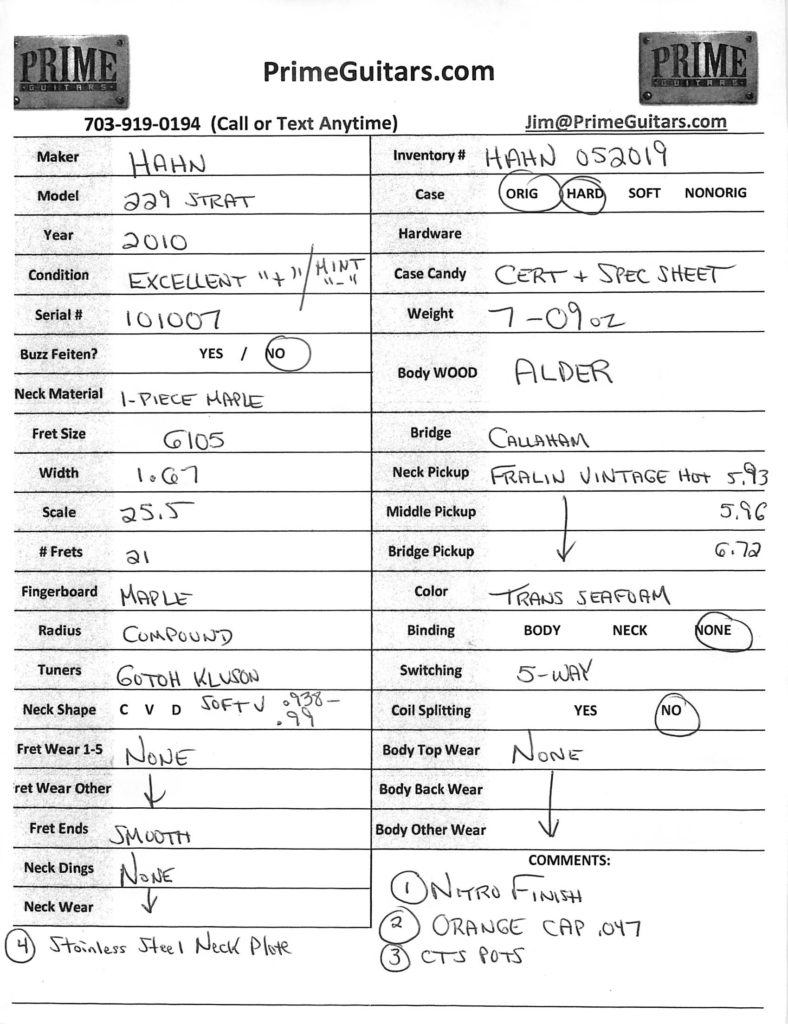 PRIME
GUITARS
PrimeGuitars.com
PRIME
GUITARS
703-919-0194 (Call or Text Anytime)
Jim@PrimeGuitars.com
Maker HAHN
Model 229 STRAT
Year 2010
Condition EXCELLENT "+"/MINT "-"
Serial # 101007
Buzz Feiten? YES / NO
Neck Material 1-PIECE MAPLE
Fret Size 6105
Width 1.67
Scale 25.5
# Frets 21
Fingerboard MAPLE
Radius COMPOUND
Tuners GOTOH KLUSON
Neck Shape C V D SOFT V .938-
.99
Fret Wear 1-5 NONE
ret Wear Other
Fret Ends SMOOTH
Neck Dings NONE
Neck Wear
4 Stainless Steel Neck Plate
Inventory # HAHN 052019
Case ORIG HARD SOFT NONORIG
Hardware
Case Candy CERT + SPEC SHEET
Weight 7-09oz
Body WOOD ALDER
Bridge CALLAHAM
Neck Pickup FRALIN VINTAGE HOT 5.93
Middle Pickup 5.96
Bridge Pickup 6.72
Color TRANS SEAFOAM
Binding BODY NECK NONE
Switching 5-WAY
Coil Splitting YES NO
Body Top Wear NONE
Body Back Wear
Body Other Wear
COMMENTS:
1 NITRO FINISH
2 ORANGE CAP .047
3 CTS POTS